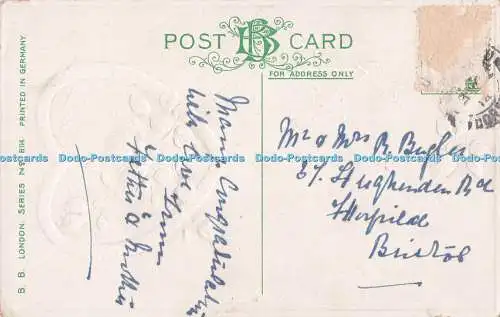 POST CARD
FOR ADDRESS ONLY
B. B. LONDON. SERIES Nº PRINTED IN GERMANY.
Many Congratulations
with love
from
Father & Mother
Mr & Mrs R. Bugler
37. Hughenden Rd
Horfield
Bristol
Dodo-Postcards Dodo-Postcards Dodo-Postcards Dodo-Postcards Dodo-Postcards Dodo-Postcards Dodo-Postcards